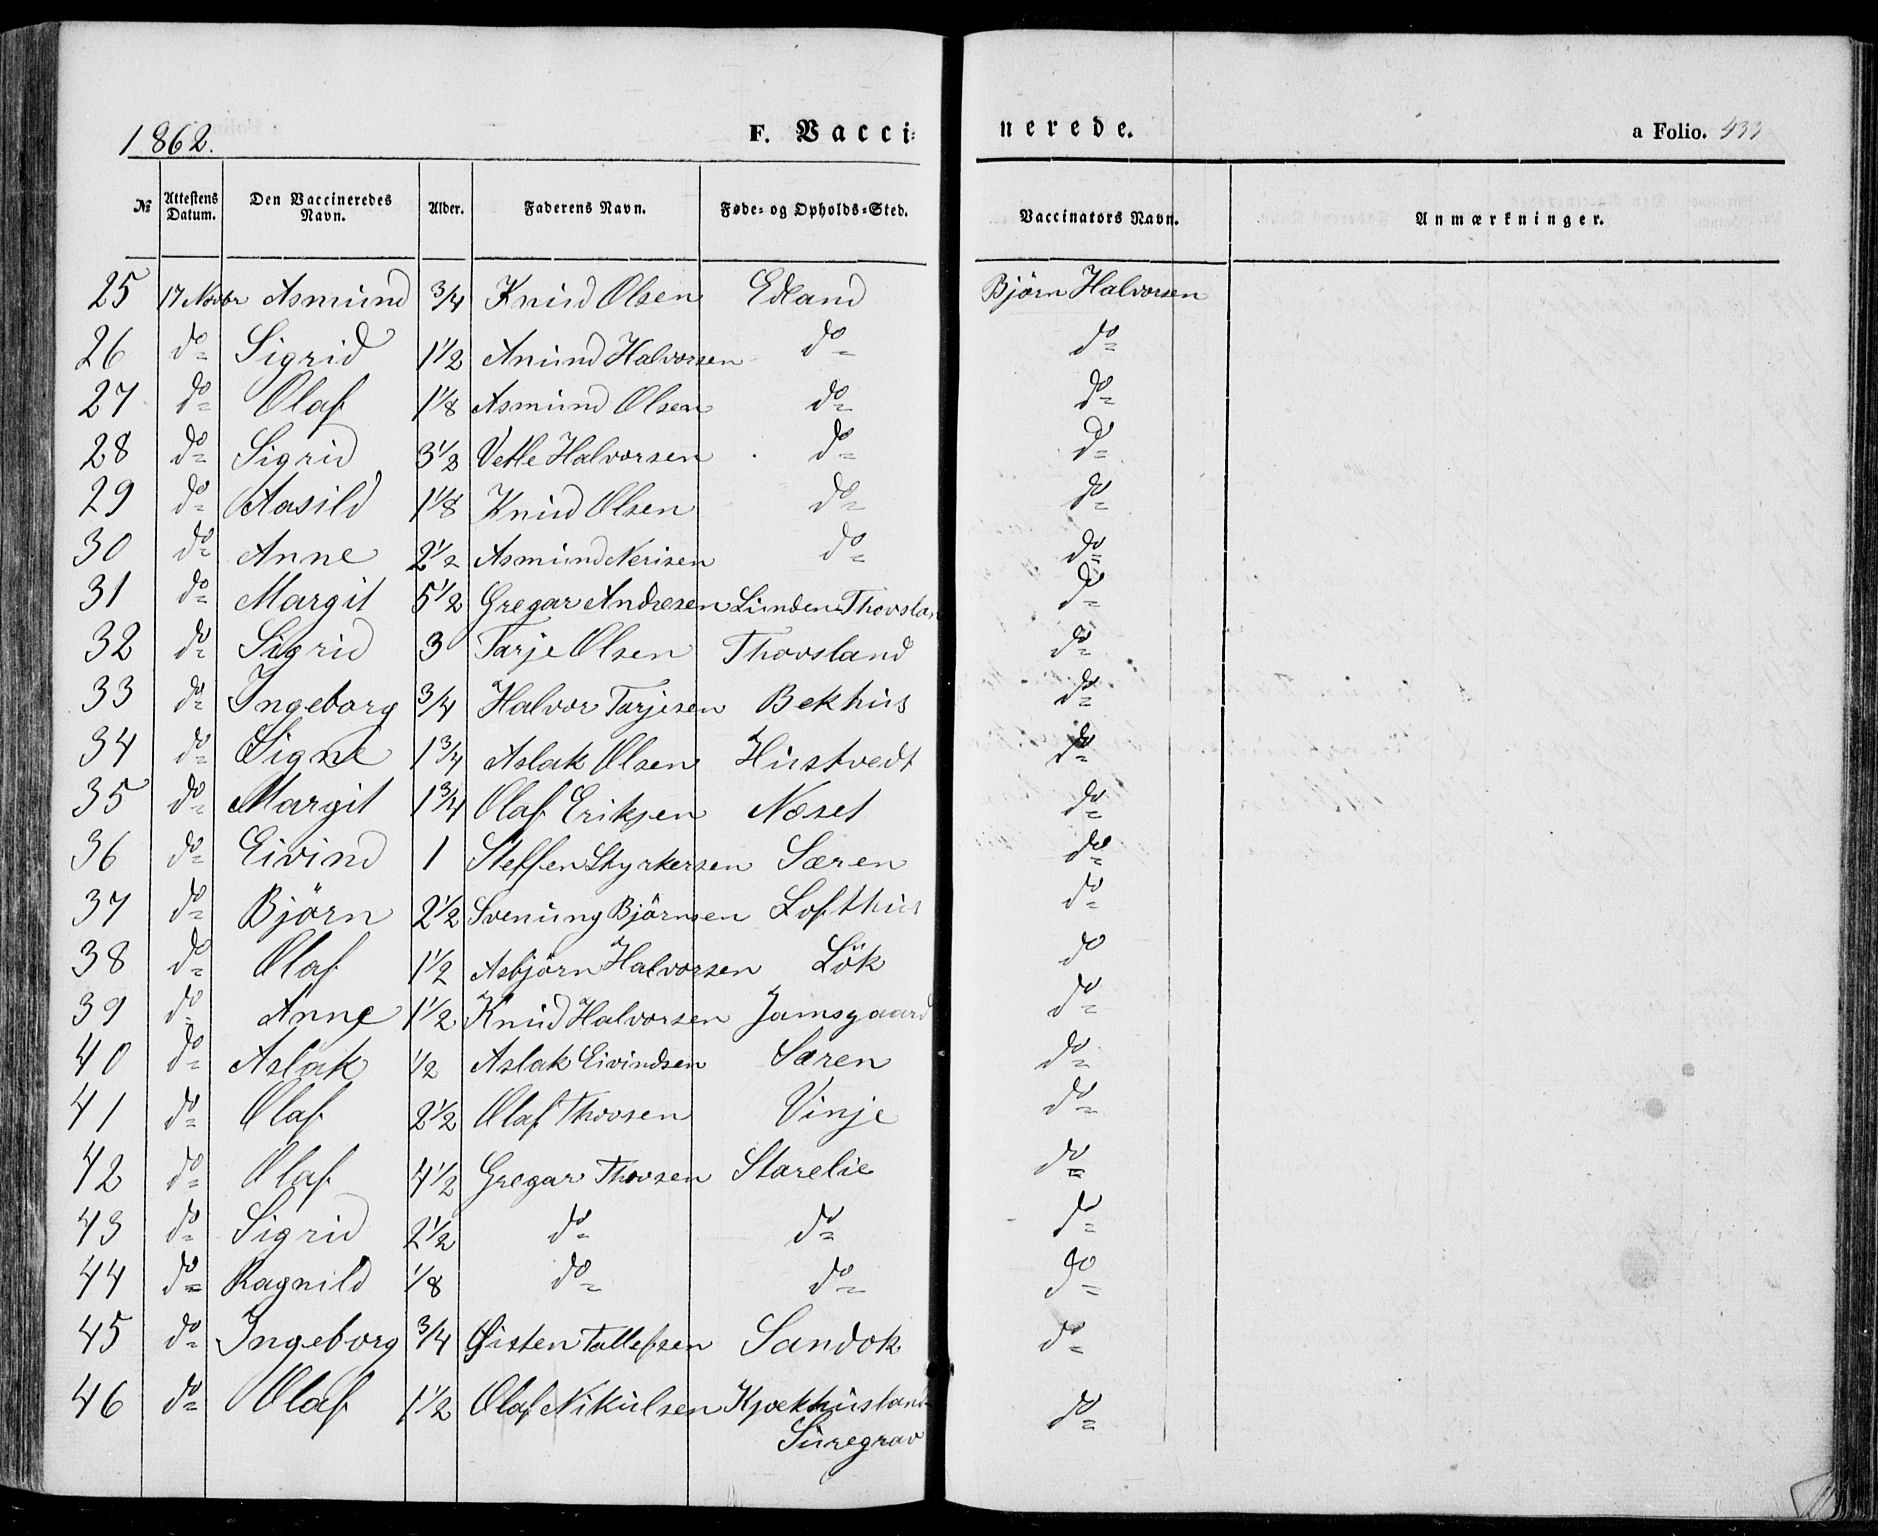 1862. F. Vacci- nerede. a Folio. 433
№ Attestens Datum. Den Vaccineredes Navn. Alder. Faderens Navn. Føde- og Opholds-Sted. Vaccinators Navn. Anmærkninger.
25 17 Novbr Asmund 3/4 Knud Olsen Edland Björn Halvorsen
26 do Sigrid 1 1/2 Anund Halvorsen do do
27 do Olaf 1 1/8 Asmund Olsen do do
28 do Sigrid 3 1/2 Vetle Halvorsen do do
29 do Aasild 1 1/8 Knud Olsen do do
30 do Anne 2 1/2 Asmund Nerisen do do
31 do Margit 5 1/2 Gregar Andresen Lunden Thovslan do
32 do Sigrid 3 Tarje Olsen Thovsland do
33 do Ingeborg 3/4 Halvor Tarjesen Bekhus do
34 do Signe 1 3/4 Aslak Olsen Hustvedt do
35 do Margit 1 3/4 Olaf Eriksen Næset do
36 do Eivind 1 Steffen Styrkersen Særen do
37 do Björn 2 1/2 Svenung Björnsen Lofthus do
38 do Olaf 1 1/2 Asbjörn Halvorsen Lök do
39 do Anne 1 1/2 Knud Halvorsen Jamsgaard do
40 do Aslak 1/2 Aslak Eivindsen Særen do
41 do Olaf 2 1/2 Olaf Thovsen Vinje do
42 do Olaf 4 1/2 Gregar Thovsen Starelie do
43 do Sigrid 2 1/2 do do do
44 do Ragnild 1/8 do do do
45 do Ingeborg 3/4 Øisten Tallefsen Sandok do
46 do Olaf 1 1/2 Olaf Nikulsen Kjækhusland do
Suregrav